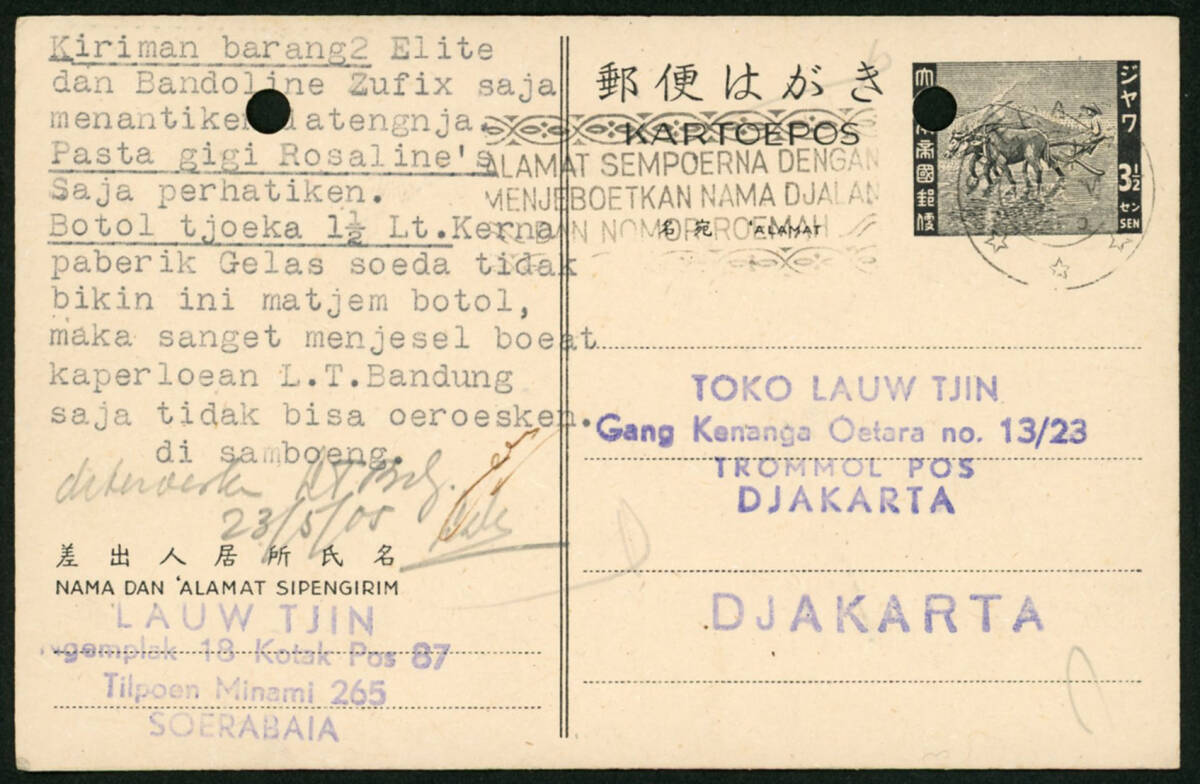 Kiriman barang2 Elite
dan Bandoline Zufix saja
menantiken datengnja.
Pasta gigi Rosaline's
Saja perhatiken.
Botol tjoeka 1½ Lt.Kerna
paberik Gelas soeda tidak
bikin ini matjem botol,
maka sanget menjesel boeat
kaperloean L.T.Bandung
saja tidak bisa oeroesken.
di samboeng.
23/5/05
差出人居所氏名
NAMA DAN 'ALAMAT SIPENGIRIM
LAUW TJIN
Ngemplak 18 Kotak Pos 87
Tilpoen Minami 265
SOERABAIA
郵便はがき
KARTOEPOS
ALAMAT SEMPOERNA DENGAN
MENJEBOETKAN NAMA DJALAN
DAN NOMOR ROEMAH
名宛 'ALAMAT
大日本帝國郵便
ジャワ
3½
セン
SEN
TOKO LAUW TJIN
Gang Kenanga Oetara no. 13/23
TROMMOL POS
DJAKARTA
DJAKARTA